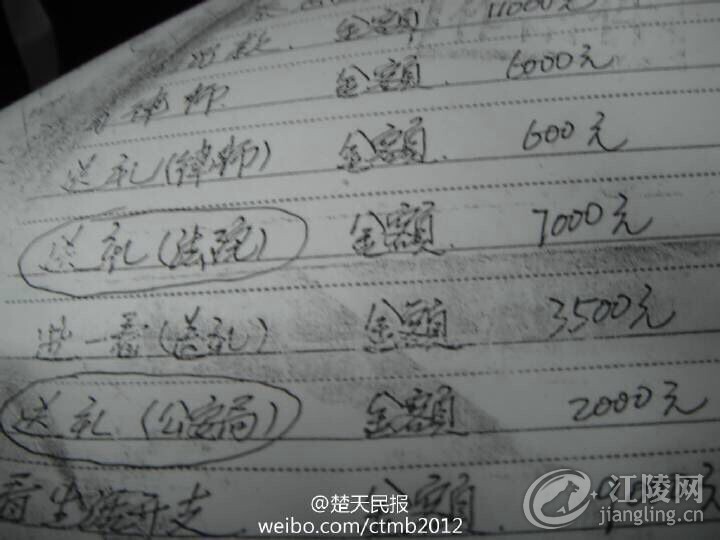 款. 金额 11000元
律师. 金额 6000元
送礼(律师) 金额. 600元
送礼(法院) 金额. 7000元
一看(送礼) 金额 3500元
送礼(公安局) 金额 2000元
看生活开支 金额 元
@楚天民报
weibo.com/ctmb2012
江陵网
jiangling.cn